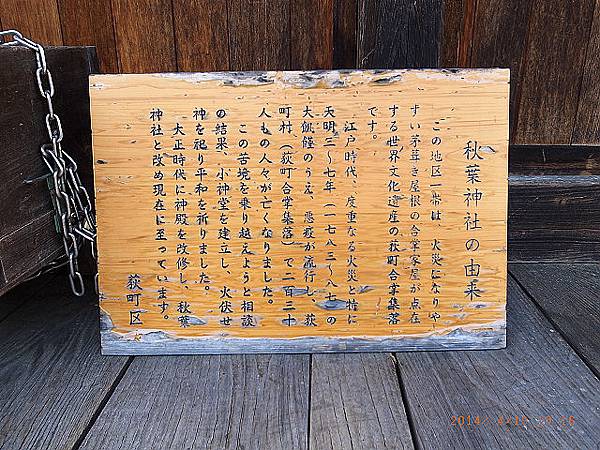 秋葉神社の由来
この地区一帯は、火災になりや
すい茅葺き屋根の合掌家屋が点在
する世界文化遺産の荻町合掌集落
です。
江戸時代、度重なる火災と特に
天明三〜七年(一七八三〜八七)の
大飢饉のうえ、悪疫が流行し、荻
町村(荻町合掌集落)で二百三十
人もの人々が亡くなりました。
この苦境を乗り越えようと相談
の結果、小神堂を建立し、火伏せ
神を祀り平和を祈りました。
大正時代に神殿を改修し、秋葉
神社と改め現在に至っています。
荻町区